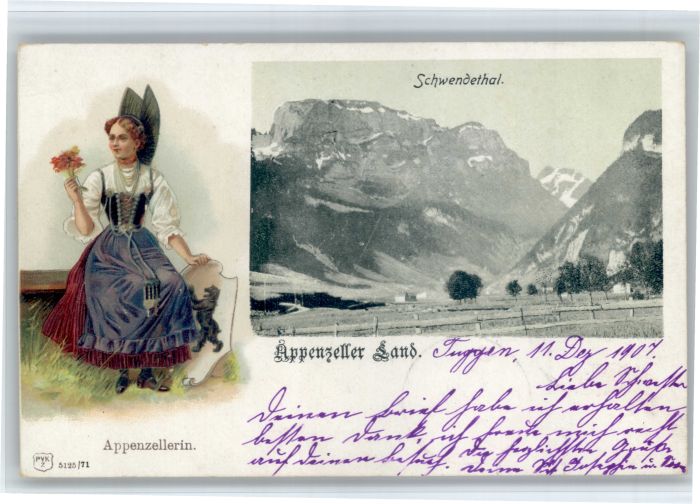 Schwendethal.
Appenzeller Land. Tuggen, 11. Dez 1907.
Liebe Schwester
Deinen Brief habe ich erhalten
besten Dank, ich freue mich recht
auf deinen besuch. Die herzlichsten Grüße
Deine Josephine u.
Appenzellerin.
PVKZ
5125/71